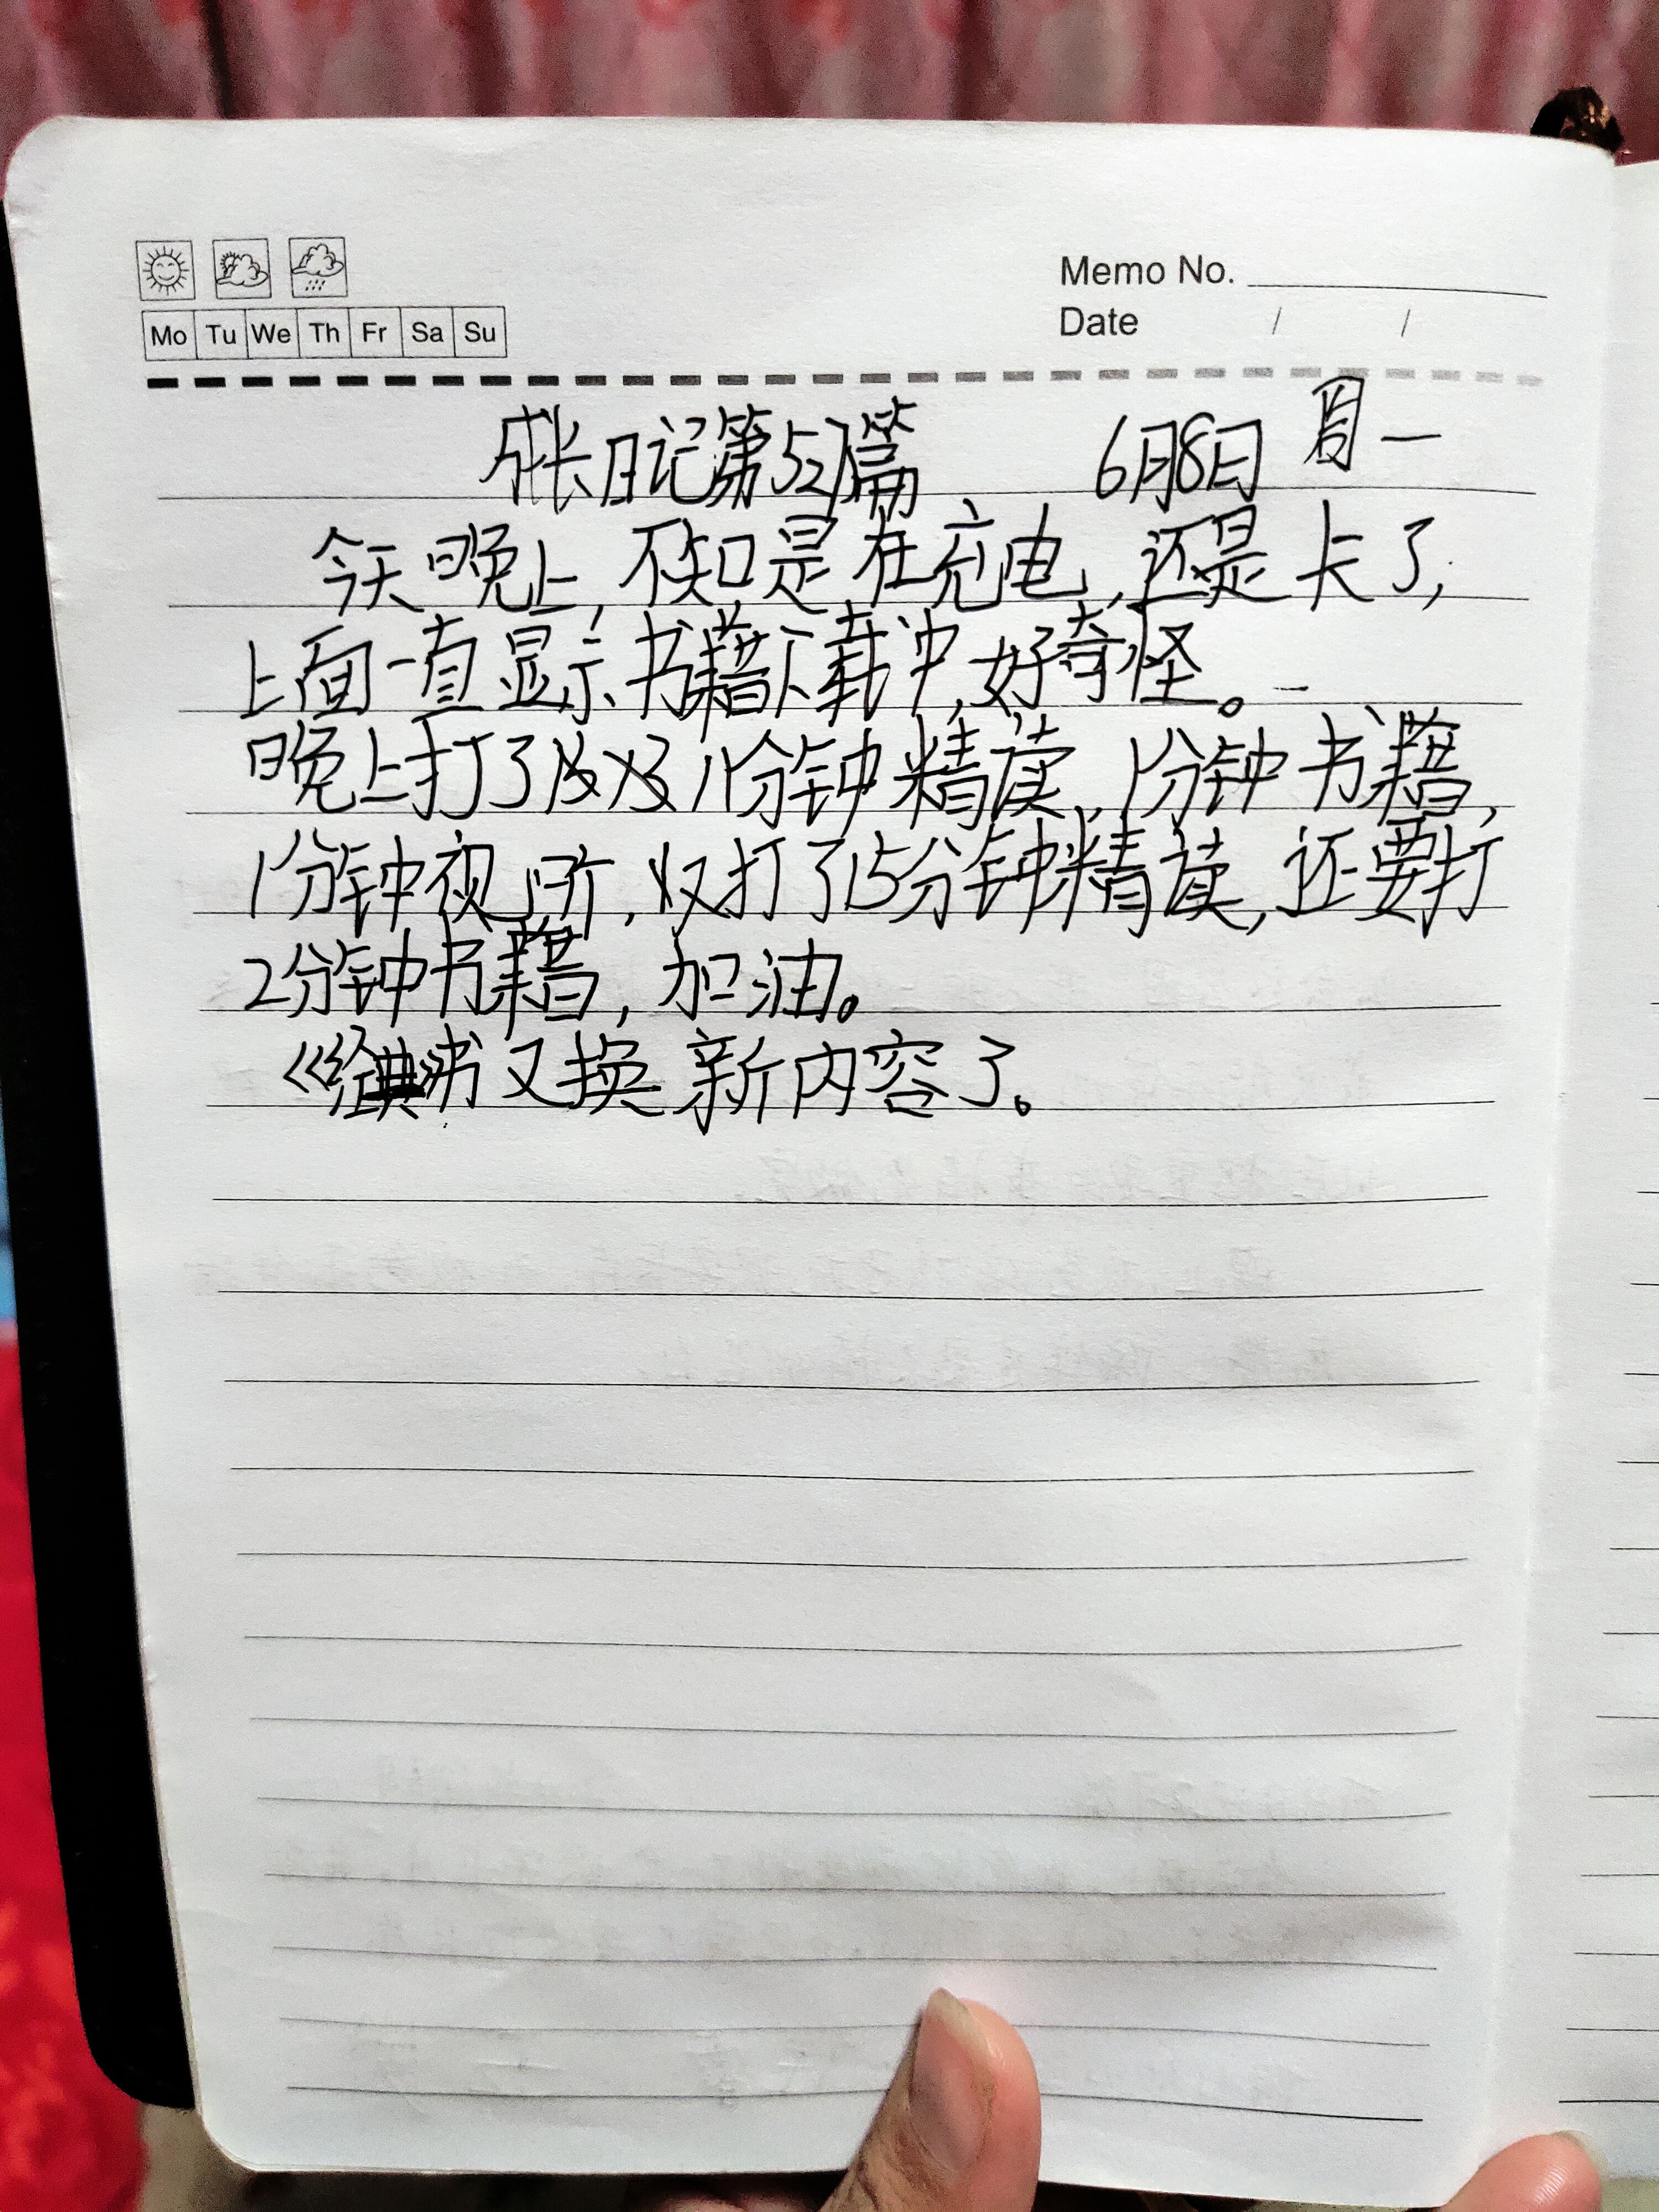 Memo No.
Mo Tu We Th Fr Sa Su
Date / /
成长日记第527篇 6月8日 周一
今天晚上,不知是在充电,还是卡了,
上面一直显示书籍下载中,好奇怪。
晚上打了 11分钟精读,1分钟书籍,
1分钟视听,又打了15分钟精读,还要打
2分钟书籍,加油。
《经典》书又换新内容了。